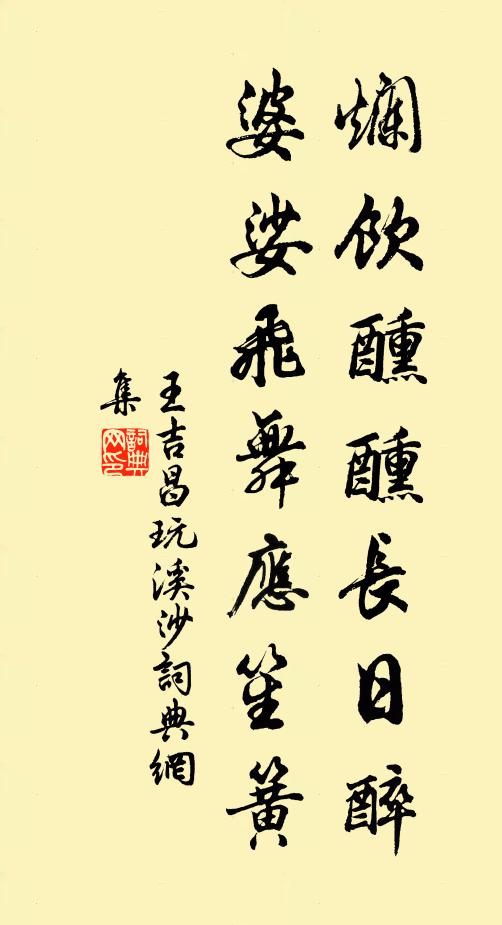 爛飲醺醺長日醉
婆娑飛舞應笙簧
王吉昌玩溪沙詞典網
集
詞典
网印